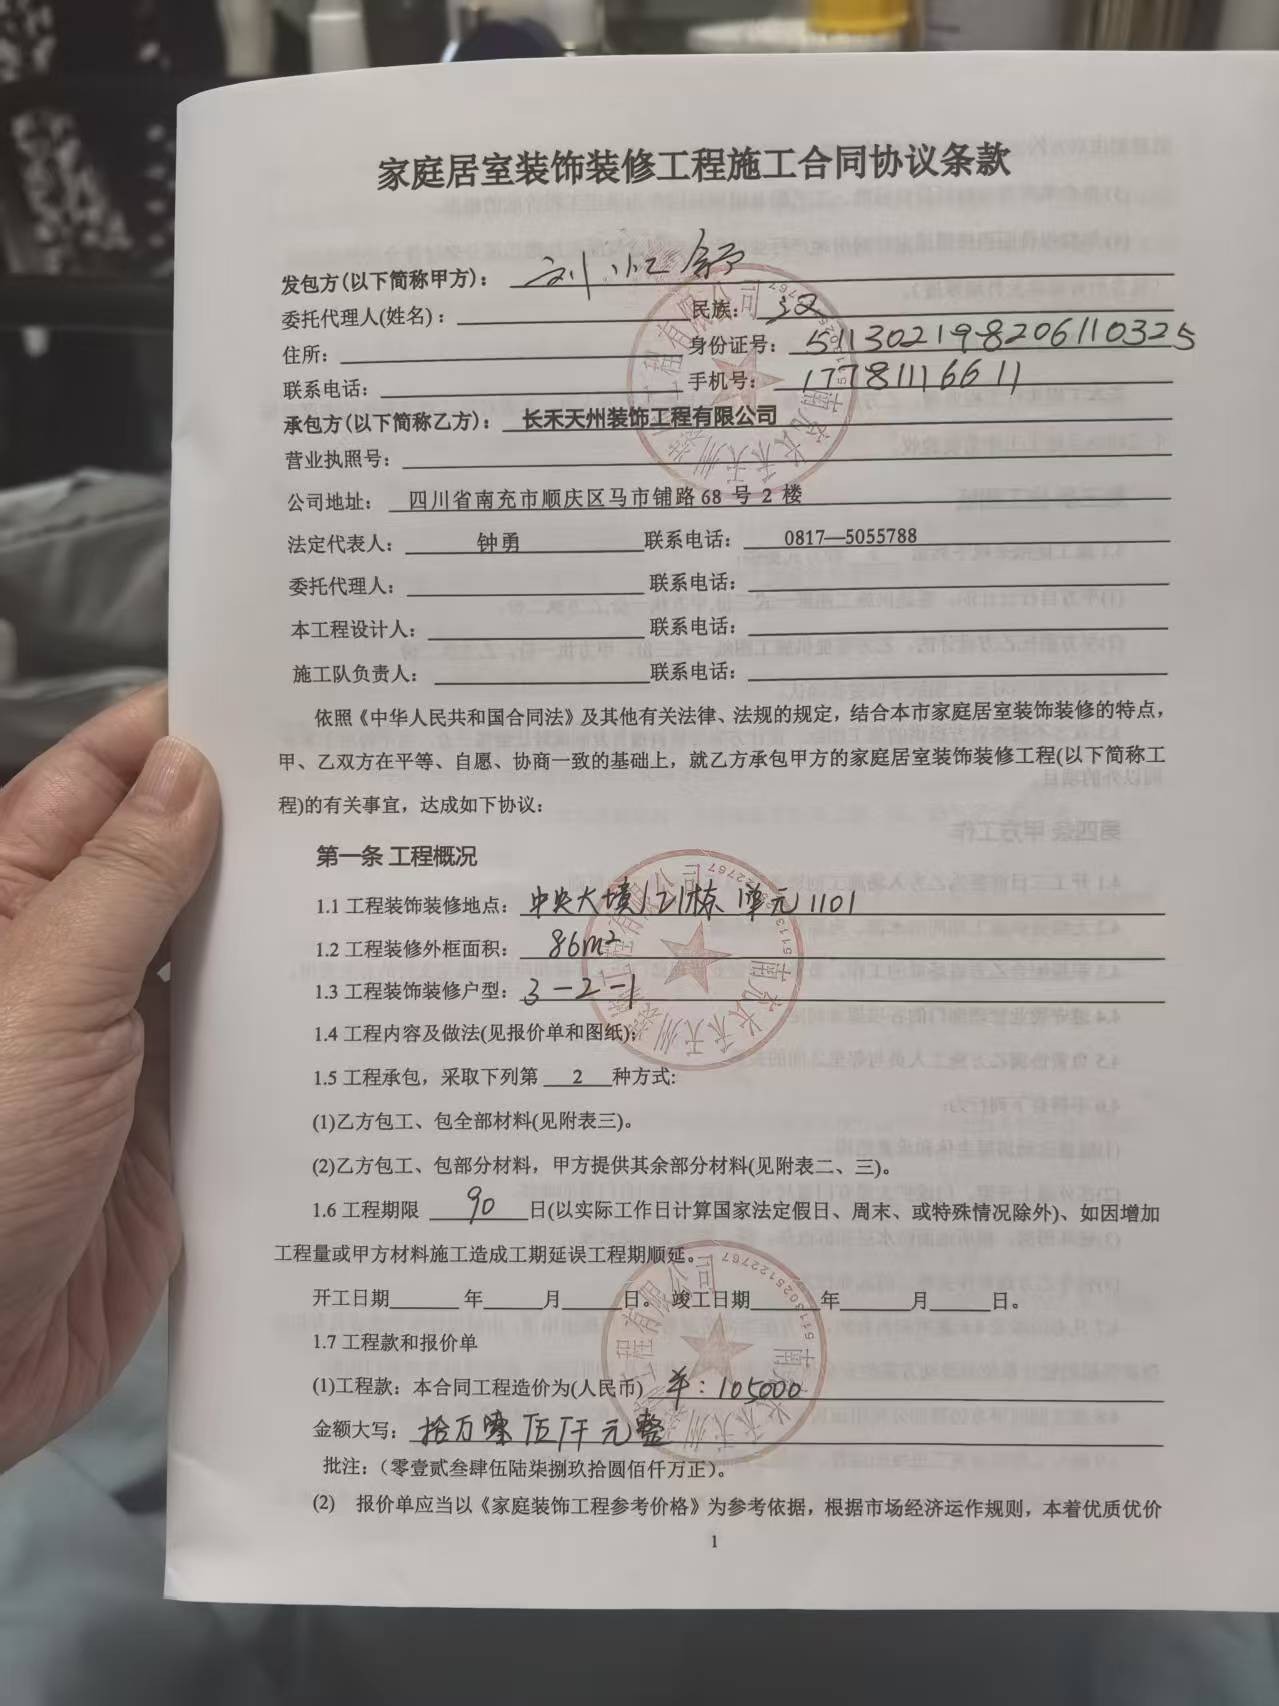 家庭居室装饰装修工程施工合同协议条款
发包方(以下简称甲方)：刘小红
委托代理人(姓名)：民族：汉
住所：身份证号：511302198206110325
联系电话：手机号：17781116611
承包方(以下简称乙方)：长禾天州装饰工程有限公司
营业执照号：
公司地址：四川省南充市顺庆区马市铺路68号2楼
法定代表人：钟勇 联系电话：0817—5055788
委托代理人：联系电话：
本工程设计人：联系电话：
施工队负责人：联系电话：
依照《中华人民共和国合同法》及其他有关法律、法规的规定，结合本市家庭居室装饰装修的特点，
甲、乙双方在平等、自愿、协商一致的基础上，就乙方承包甲方的家庭居室装饰装修工程(以下简称工
程)的有关事宜，达成如下协议：
第一条 工程概况
1.1 工程装饰装修地点：中央大境 21栋 1单元 1101
1.2 工程装修外框面积：86m²
1.3 工程装饰装修户型：3-2-1
1.4 工程内容及做法(见报价单和图纸)；
1.5 工程承包，采取下列第 2 种方式:
(1)乙方包工、包全部材料(见附表三)。
(2)乙方包工、包部分材料，甲方提供其余部分材料(见附表二、三)。
1.6 工程期限 90 日(以实际工作日计算国家法定假日、周末、或特殊情况除外)、如因增加
工程量或甲方材料施工造成工期延误工程期顺延。
开工日期 年 月 日。 竣工日期 年 月 日。
1.7 工程款和报价单
(1)工程款：本合同工程造价为(人民币) ￥：105000
金额大写：拾万零伍仟元整
批注：（零壹贰叁肆伍陆柒捌玖拾圆佰仟万正）。
(2) 报价单应当以《家庭装饰工程参考价格》为参考依据，根据市场经济运作规则，本着优质优价
1
南充长禾天州装饰工程有限公司
5113025122767
南充长禾天州装饰工程有限公司
5113025122767
南充长禾天州装饰工程有限公司
5113025122767